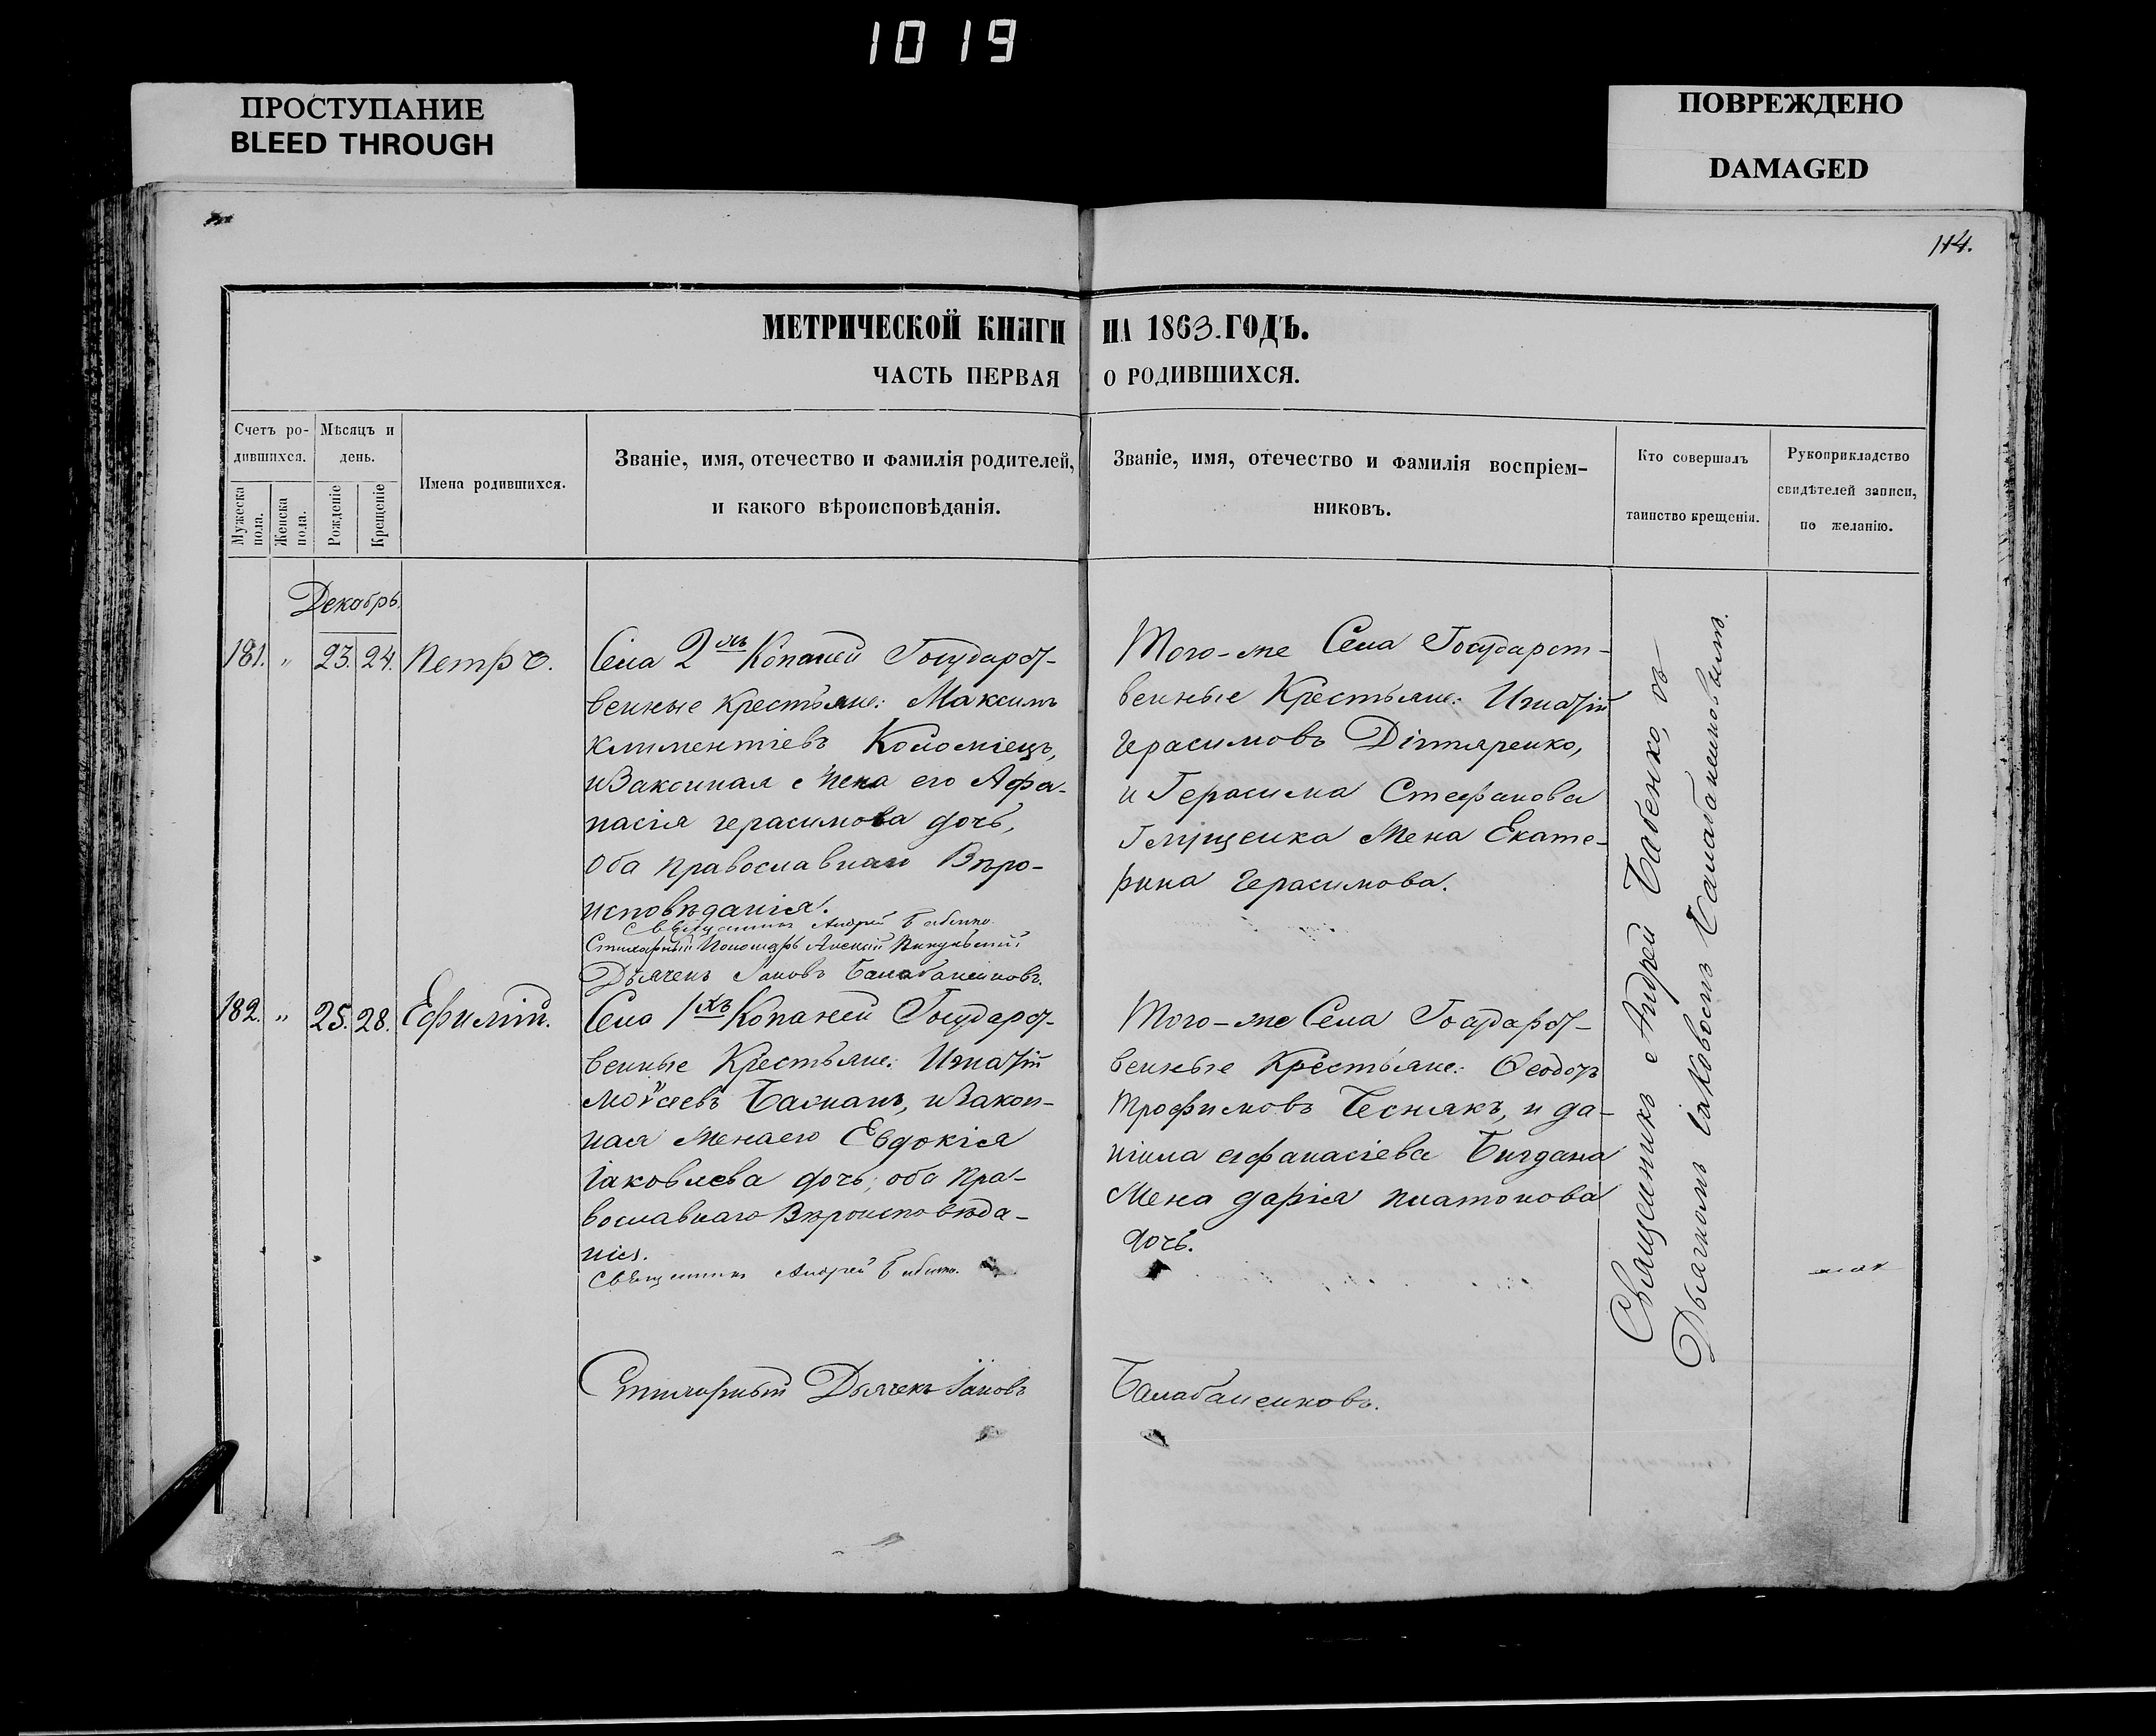 1019
ПРОСТУПАНИЕ
BLEED THROUGH
ПОВРЕЖДЕНО
DAMAGED
114.
МЕТРИЧЕСКОЙ КНИГИ НА 1863. ГОДЪ.
ЧАСТЬ ПЕРВАЯ О РОДИВШИХСЯ.
Счетъ ро-
дившихся.
Мужеска
пола.
Женска
пола.
Мѣсяцъ и
день.
Рожденіе
Крещеніе
Имена родившихся.
Званіе, имя, отечество и фамилія родителей,
и какого вѣроисповѣданія.
Званіе, имя, отечество и фамилія воспріем-
никовъ.
Кто совершалъ
таинство крещенія.
Рукоприкладство
свидѣтелей записи,
по желанію.
Декабрь.
181. " 23. 24. Петръ.
Села 2хъ Копаней Государст-
венные Крестьяне: Максимъ
Климентіевъ Коломіецъ,
и Законная Жена его Афа-
насія Герасимова дочь,
Оба Православнаго Вѣро-
исповѣданія.
Священникъ Андрей Бабенко.
Стихарный Пономарь Алексій
Дьячекъ Іаковъ Балабаненковъ.
Того-же Села Государст-
венные Крестьяне: Игнатій
Герасимовъ Дігтяренко,
и Герасима Стефанова
Глущенка Жена Екате-
рина Герасимова.
182. " 25. 28. Ефимій.
Села 1хъ Копаней Государст-
венные Крестьяне: Игнатій
Моѵсеевъ Баснанъ, и Закон-
ная Жена его Евдокія
Іаковлева дочь, оба Пра-
вославнаго Вѣроисповѣда-
нія.
Священникъ Андрей Бабенко.
Того-же Села Государст-
венные Крестьяне: Ѳеодоръ
Трофимовъ Беснякъ, и Да-
ніила Афанасіева Бигдана
Жена Дарія Платонова
дочь.
Священникъ Андрей Бабенко, съ
Дьячкомъ Іаковомъ Балабаненковымъ.
Стихарный Дьячекъ Іаковъ Балабаненковъ.